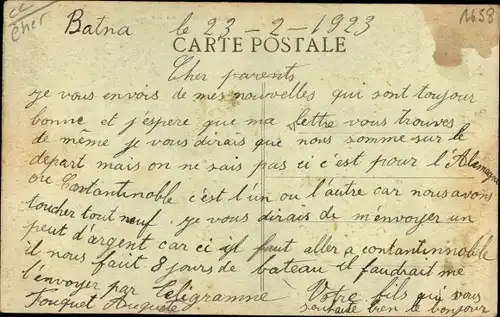 cc
Cher
1658
Batna le 23-2-1923
CARTE POSTALE
Cher parents
je vous envois de mes nouvelles qui sont toujour
bonne et j'espere que ma lettre vous trouves
de même je vous dirais que nous somme sur le
depart mais on ne sais pas ci c'est pour l'Alemagne
ou Constantinoble c'est l'un ou l'autre car nous avons
toucher tout neuf. je vous dirais de m'envoyer un
peut d'argent car ci il faut aller a contantinnoble
il nous faut 8 jours de bateau il faudrait me
l'envoyer par Teligramme Votre fils qui vous
Fouquet Auguste souhaite bien le bonjour